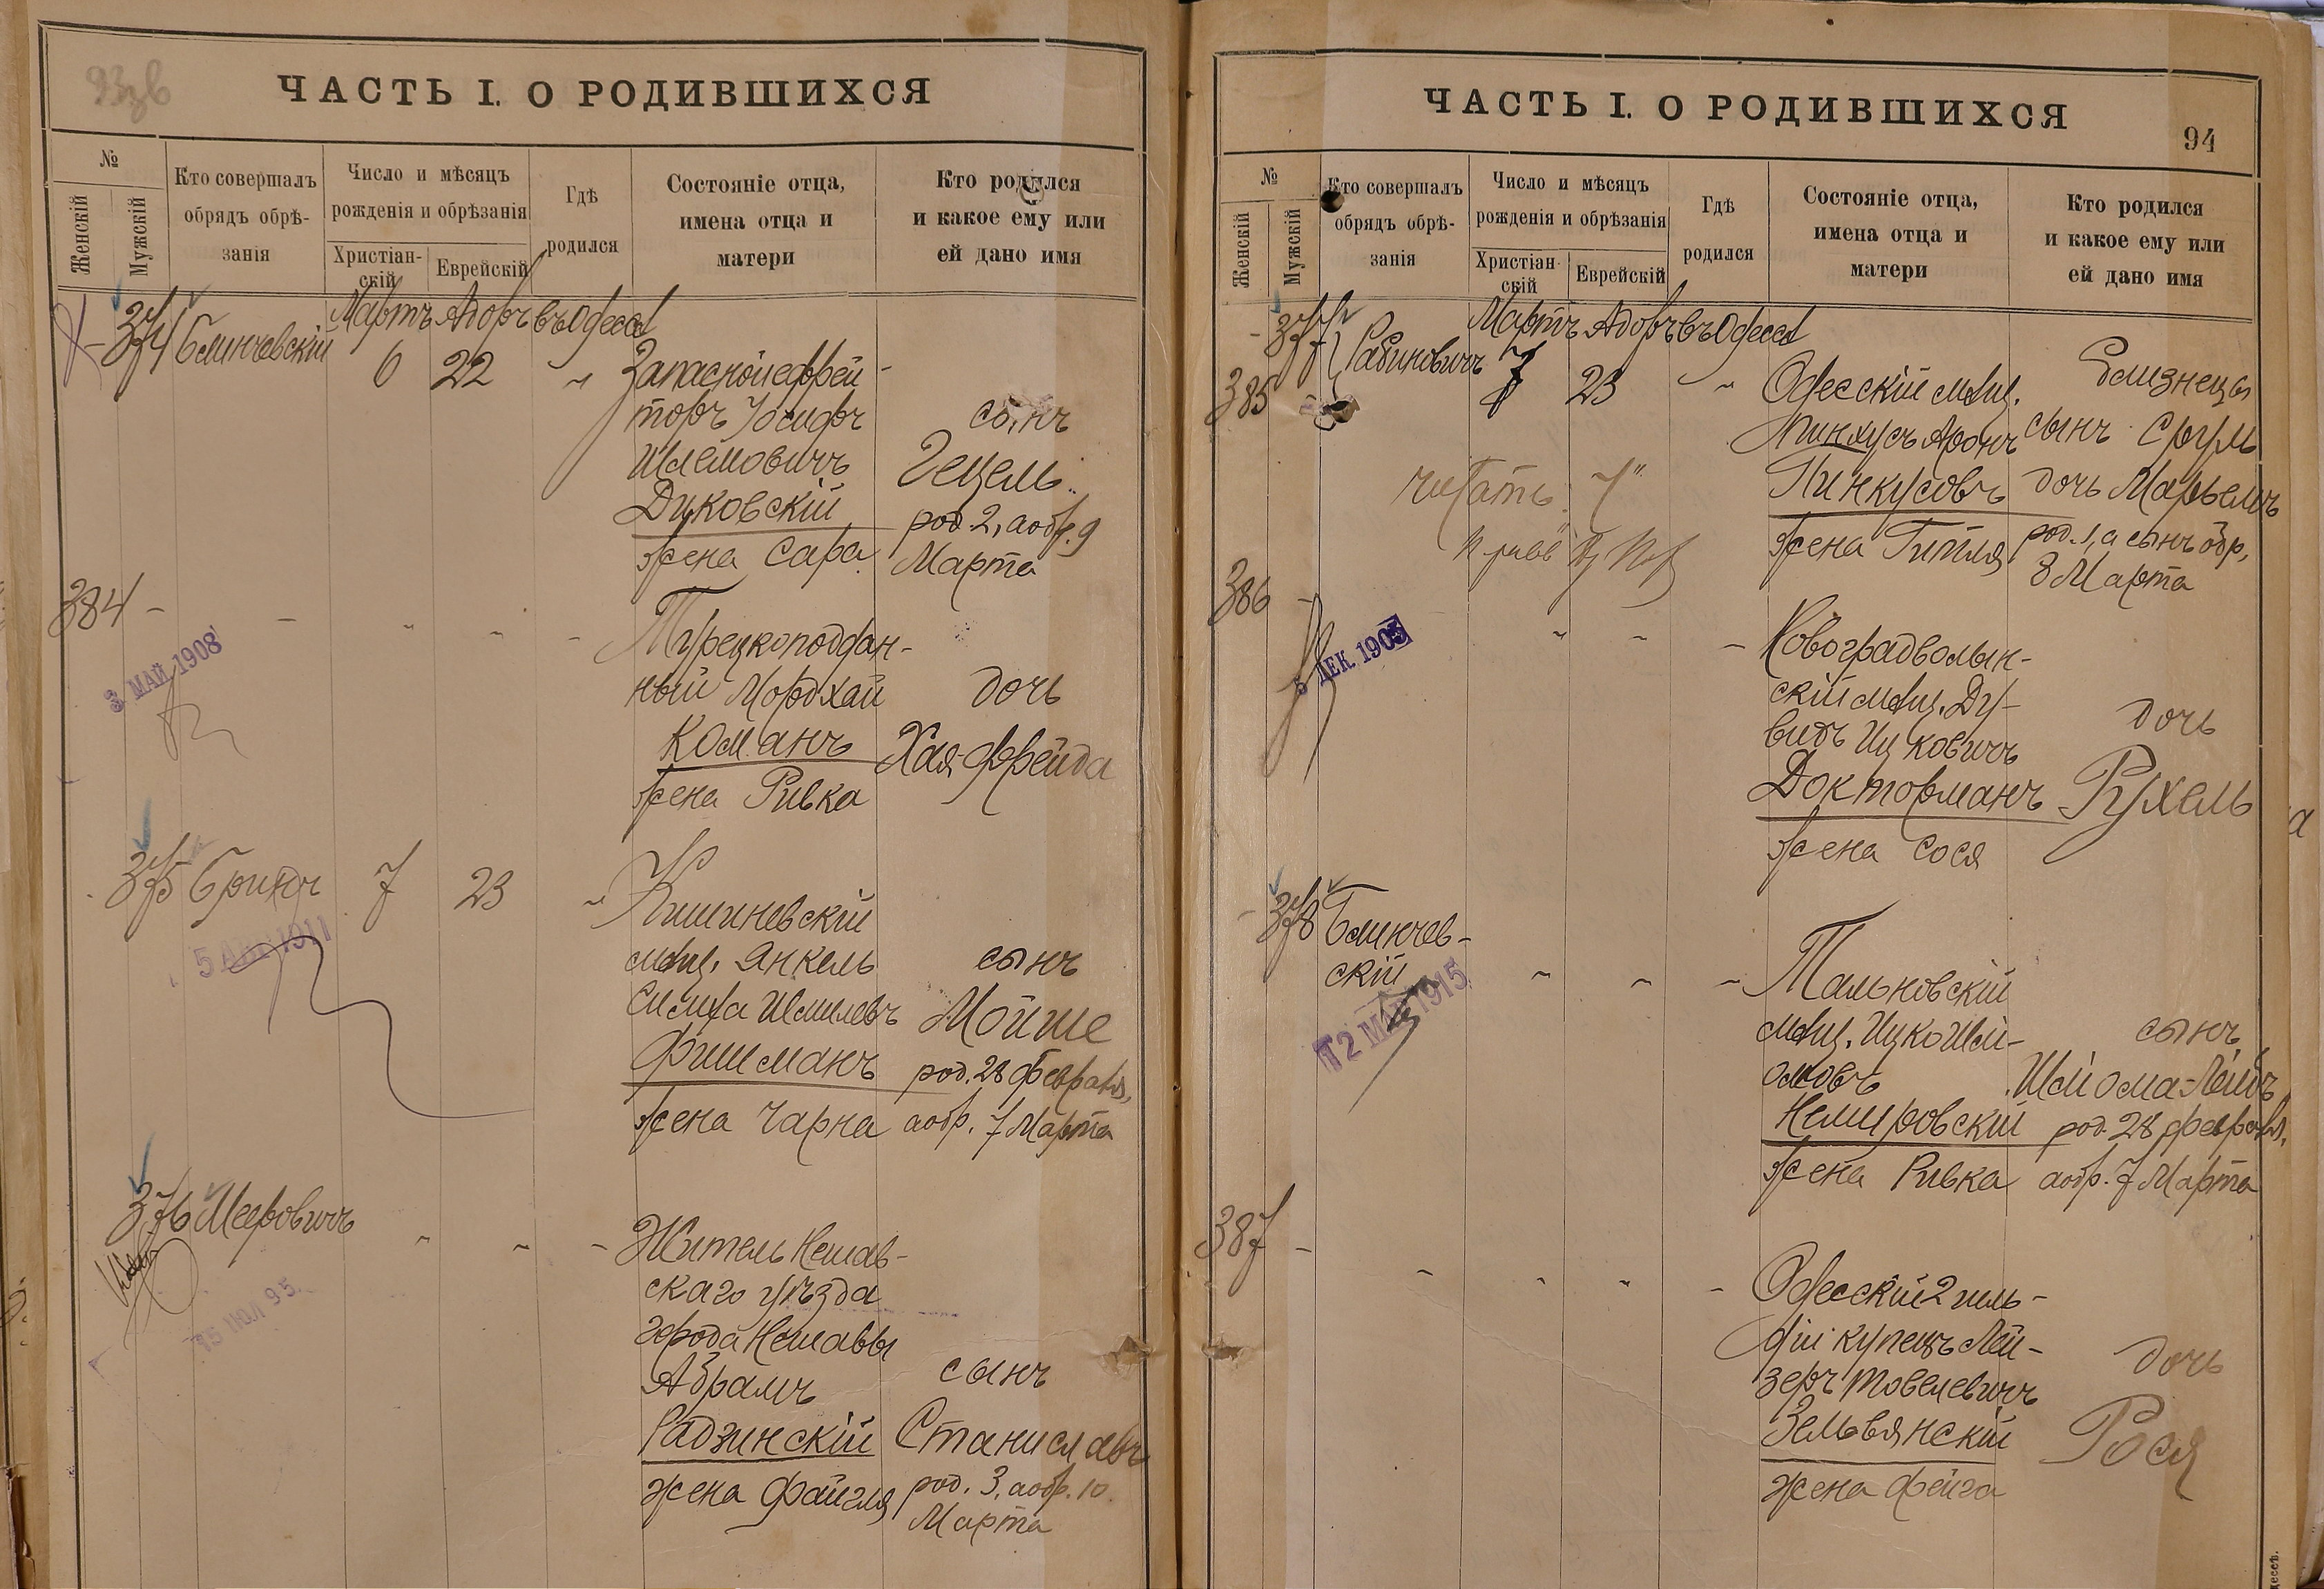 93зв
ЧАСТЬ I. О РОДИВШИХСЯ
№
Женскій
Мужскій
Кто совершалъ
обрядъ обрѣ-
занія
Число и мѣсяцъ
рожденія и обрѣзанія
Христіан-
скій
Еврейскій
Гдѣ
родился
Состояніе отца,
имена отца и
матери
Кто родился
и какое ему или
ей дано имя
Мартъ Адоръ въ Одессѣ
374 Блинчевскій 6 22 " Запасной ефрей-
торъ Іосифъ
Шлемовичъ
Дуковскій
жена Сара
сынъ
Гецель
род. 2, а обр. 9
Марта
384 -
3 МАЙ 1908
Турецкоподдан-
ный Мордхай
Команъ
жена Ривка
дочь
Хая-Фрейда
375 Бриндъ 7 23 " Кишиневскій
мѣщ. Янкель
Симха Шмилевъ
Фишманъ
жена Чарна
сынъ
Мойше
род. 28 февраля,
а обр. 7 Марта
1911
376 Мееровичъ
15 ІЮЛ 95
Житель Нешав-
скаго уѣзда
города Нешавы
Абрамъ
Радзинскій
жена Файгля
сынъ
Станиславъ
род. 3, а обр. 10
Марта
ЧАСТЬ I. О РОДИВШИХСЯ
94
№
Женскій
Мужскій
Кто совершалъ
обрядъ обрѣ-
занія
Число и мѣсяцъ
рожденія и обрѣзанія
Христіан-
скій
Еврейскій
Гдѣ
родился
Состояніе отца,
имена отца и
матери
Кто родился
и какое ему или
ей дано имя
Мартъ Адоръ въ Одессѣ
377 Рабиновичъ 7 23 " Одесскій мѣщ.
385 -
Пинхусъ Аронъ
Пинкусовъ
жена Гитля
Близнецы
сынъ Сруль
дочь Марьемъ
род. 1, а сынъ обр.
8 Марта
читать "7"
386 -
5 ДЕК. 1905
Новоградволын-
скій мѣщ. Ду-
видъ Ицковичъ
Докторманъ
жена Сося
дочь
Рухель
378 Блинчев-
скій
1915
Тальновскій
мѣщ. Ицко Шлі-
омовъ
Немировскій
жена Ривка
сынъ
Шліома-Лейбъ
род. 28 февраля,
а обр. 7 Марта
387 -
Одесскій 2 гиль-
діи купецъ Лей-
зеръ Товелевичъ
Зельвянскій
жена Фейга
дочь
Рося